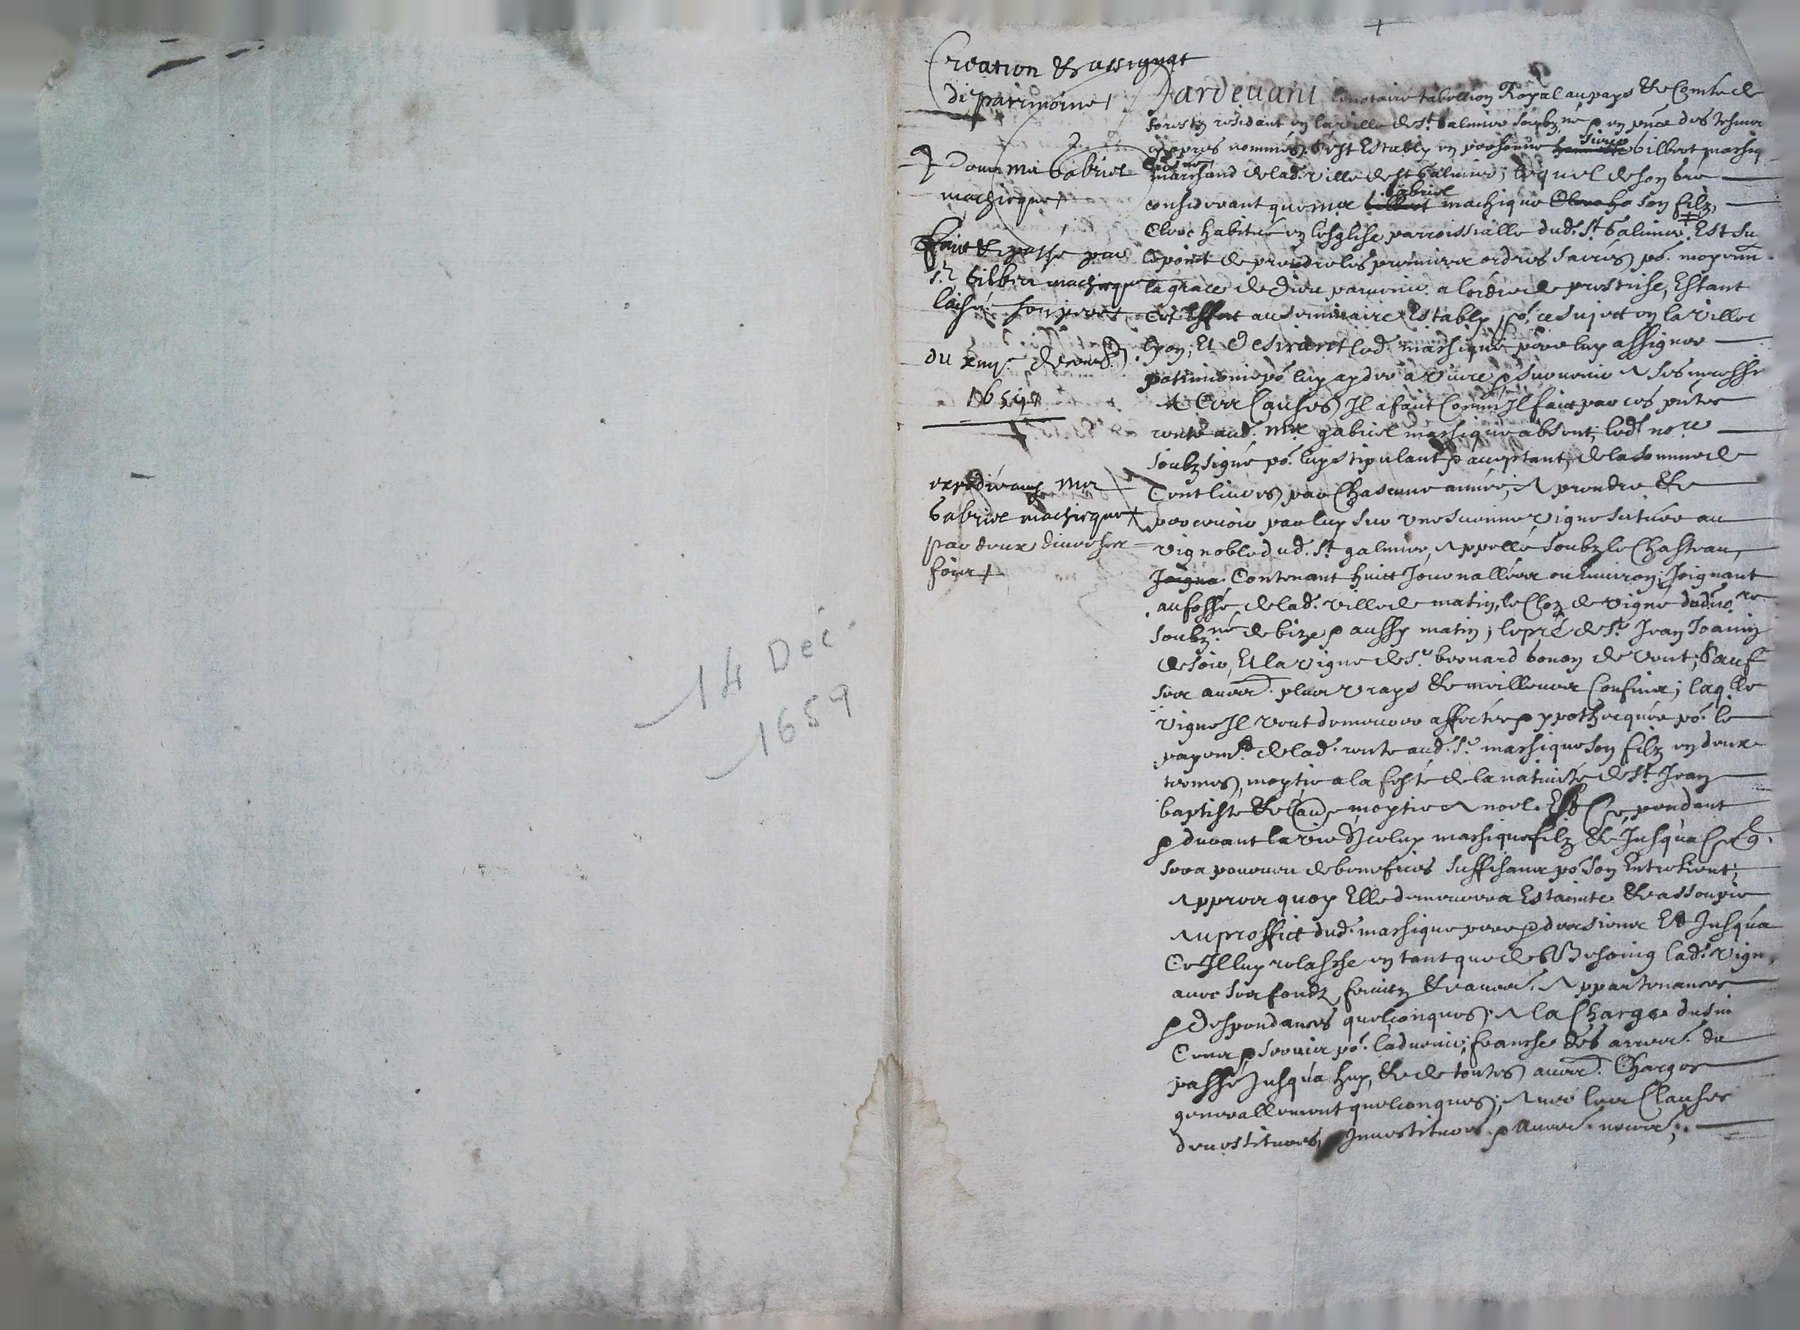 14 Dec.
1659
Creation & assignat
de patrimoine
Pour Mre Gabriel
machicque
Fait & passé par
Sr Gilbert machicque
laisné son pere
du xiiije decemb.
1659
expedié aud. Mre
Gabriel machicque
par deux diverses
foix
Pardevant le notaire tabellion Royal au pays & Comté de
forestz residant en la ville de St Galmier soubzné & en pnce des tesmoins
cy apres nommés, s'est Estably en personne sieur Gilbert massiq
marchand de lad. ville de St Galmier, lequel de son bre
considerant que Mre Gabriel machique son filz,
Clerc habitué en l'esglise parroissialle dud. St Galmier, Est su
le point de prendre les premiers ordres sacrés po. moyenn
la grace de dieu parvenir a l'ordre de prestrise, Estant
au seminaire Estably po. ce sujet en la ville
Lyon, Et desirant led. massique pere luy assigner
patrimoine po. luy ayder a vivre & survenir A ses necessi
A Ces Causes Il a faict Comme Il faict par ces pntes
rente aud. Mre gabriel massique absent, led. nore
soubzsigné po. luy stipulant & acceptant, de la somme de
Cent livres par Chascune année, A prendre &
percevoir par luy sur une sienne vigne située au
vignoble dud. St galmier, Appellé soubz le Chasteau,
Contenant huict Journallées ou Environ, Joignant
au fossé de lad. ville de matin, le Cloz de vigne dud. nore
soubzné de bize & aussy matin; le pré de Sr Jean Joanin
de soir, Et la vigne de Sr bernard bonon de vent; Sauf
ses autres plus vrays & meilleurs Confins; laqlle
vigne Il veut demeurer affectée & yppothecquée po. le
payemt de lad. rente aud. Sr massique son filz en deux
termes, moytié a la feste de la nativité de St Jean
baptiste & l'autre moytié A noel. Et Ce pendant
& durant la vie d'Iceluy massique filz & Jusqua Ce q.
sera pourveu de benefices suffisans po. son Entretient;
Appres quoy Elle demeurera Estainte & assoupie
Au proffict dud. massique pere & des siens Et Jusqua
Ce Il luy relasche en tant que de besoing lad. vign
avec ses fondz, fruitz & autres Appartenances
& despendances quelconques; A la Charge du
Cens & servis po. l'advenir, franche des arrer. du
passé Jusqua huy, & de toutes autres Charges
generallement quelconques; Avec les Clauses
devestitures, Investitures & autres necess.